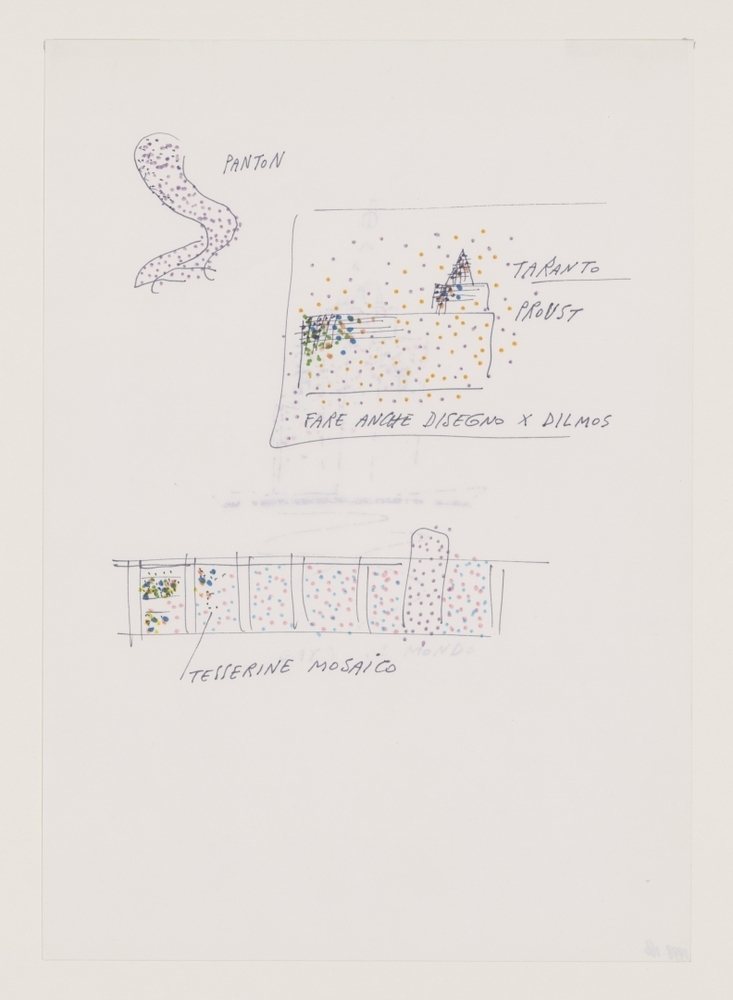 PANTON
TARANTO
PROUST
FARE ANCHE DISEGNO X DILMOS
TESSERINE MOSAICO